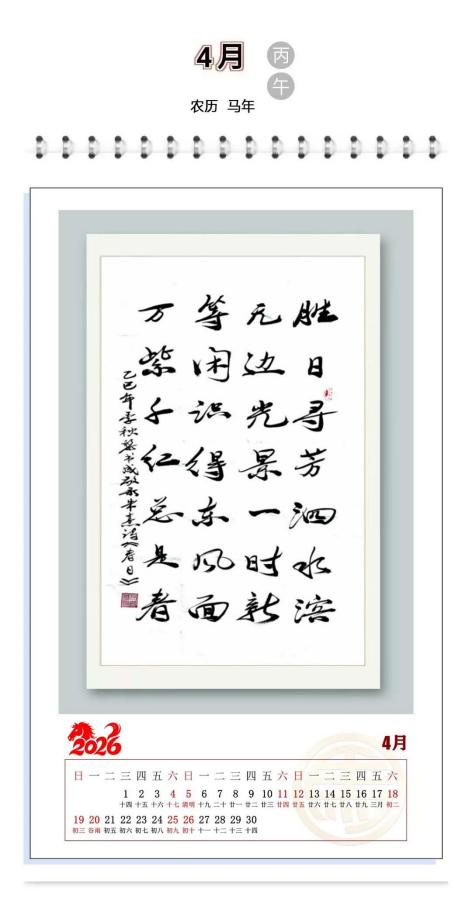 4月
丙午
农历 马年
胜日寻芳泗水滨
无边光景一时新
等闲识得东风面
万紫千红总是春
乙巳年季秋书成敬录朱熹诗《春日》
2026
4月
日 一 二 三 四 五 六 日 一 二 三 四 五 六 日 一 二 三 四 五 六
1 2 3 4 5 6 7 8 9 10 11 12 13 14 15 16 17 18
十四 十五 十六 十七 清明 十九 二十 廿一 廿二 廿三 廿四 廿五 廿六 廿七 廿八 廿九 三月 初二
19 20 21 22 23 24 25 26 27 28 29 30
初三 谷雨 初五 初六 初七 初八 初九 初十 十一 十二 十三 十四